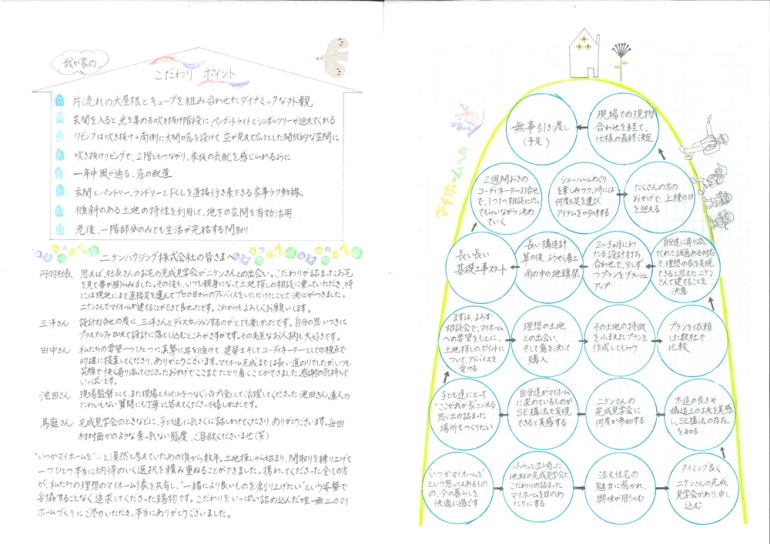 我が家の
こだわり ポイント
片流れの大屋根とキューブを組み合わせたダイナミックな外観
玄関を入ると光を集める吹き抜け階段にペンダントライトとシンボルツリーが迎えてくれる
リビングは吹き抜け+南側に大開口窓を設けて、空が見えて広々とした開放的な空間に
吹き抜けリビングで、2階ともつながり、家族の気配を感じられるように
一年中風が通る、窓の配置
玄関とパントリー、ランドリーとFCLを直接行き来できる家事ラク動線
傾斜のある土地の特性を利用して、地下の空間を有効活用
老後、一階部分のみでも生活が完結する間取り
ニケンハウジング株式会社の皆さまへ
社長
思えば、社長さんのお宅の完成見学会がニケンさんとの出会い。こだわりが詰まったお宅
を見て夢が膨らみました。その後も、いつも親身になって土地探しの相談に乗っていただき、時
には現地にまで直接足を運んでプロの目からのアドバイスをいただけたことで決心がつきました。
ニケンさんでマイホームが建てることができて良かったです。これからもよろしくお願いします。
三洋さん
設計打合せの度に、三洋さんとディスカッションするのがとても楽しかったです。自分の思いつきに
プラスアルファを加えて設計に落とし込むところがさすがです。その気さくなお人柄も大好きです。
田中さん
私たちの要望一つひとつに真摯に耳を傾けて、建築士そしてコーディネーターとしての視点で
的確に提案してくださり、ありがとうございます。マイホーム完成までは長い道のりでしたがいつも
笑顔で快く寄り添ってくださったおかげでここまでたどり着くことができました。感謝の気持ちで
いっぱいです。
池田さん
現場監督として、また現場と私たちをつなぐパイプ役として活躍してくださった池田さん。素人の
たわいもない質問にも丁寧に答えてくださって嬉しかったです。
馬庭さん
完成見学会のときなどに、子ども達に気さくに話しかけてくださりありがとうございます。毎回
村対面かのような素っ気ない態度、ご容赦くださいませ(笑)
"いつかマイホームを"…と漠然と考えていたあの頃から数年。土地探しから始まり、間取りを練り上げて
一つひとつ本当に納得のいく選択を積み重ねることができました。携わってくださった全ての方
が、私たちの理想のマイホーム像を共有し、"一緒により良いものを創り上げたい"という姿勢で
妥協することなく追求してくださった賜物です。こだわりをいっぱい詰め込んだ唯一無二のマイ
ホームづくりにご尽力いただき、本当にありがとうございました。
マイホームへ
無事引き渡し
(予定)
現場での現物
合わせを経て、
仕様の最終決定
2週間おきの
コーディネーター打合せ
で、1つ1つ相談にのっ
てもらいながら決め
ていく
ショールームめぐり
を楽しみつつ、時には
何度も足を運び
アイテムを吟味する
たくさんの方の
おかげで、上棟の日
を迎える
長い長い
基礎工事スタート
長い構造計
算の後、ようやく着工
雨の中の地鎮祭
2〜3ヶ月にわ
たる設計打ち
合わせで、少しず
つプランをブラッシュ
アップ
自分達に寄り添っ
てくれて、
で、理想の家を実現
できると思えたニケン
さんで建てることを
決意
まずは、よろず
相談会で、マイホーム
への希望をもとに、
土地探しのポイント
について、アドバイス
を受ける
理想の土地
との出会い、
そして意を決して
購入
その土地の特徴
をふまえたプランを
作成してもらう
プランを依頼
した数社で
比較
子ども達にとって
"ここが我が家"といえる
思い出の詰まった
場所をつくりたい
自分達がマイホーム
に求めているものが
SE構法で実現
できると実感する
ニケンさんの
完成見学会に
何度か参加する
木造の良さや
構造上の工夫を実感
し、SE構法の存在
を知る
"いつかマイホームを"
という思いはあるも
のの、今の暮らしを
快適に過ごす
ふらっと立ち寄った
他社の完成見学会で
こだわりの詰まった
マイホームを目のあ
たりにする
注文住宅の
魅力に惹かれ、
興味が膨らむ
タイミングよく
ニケンさんの完成
見学会があり、申し
込む